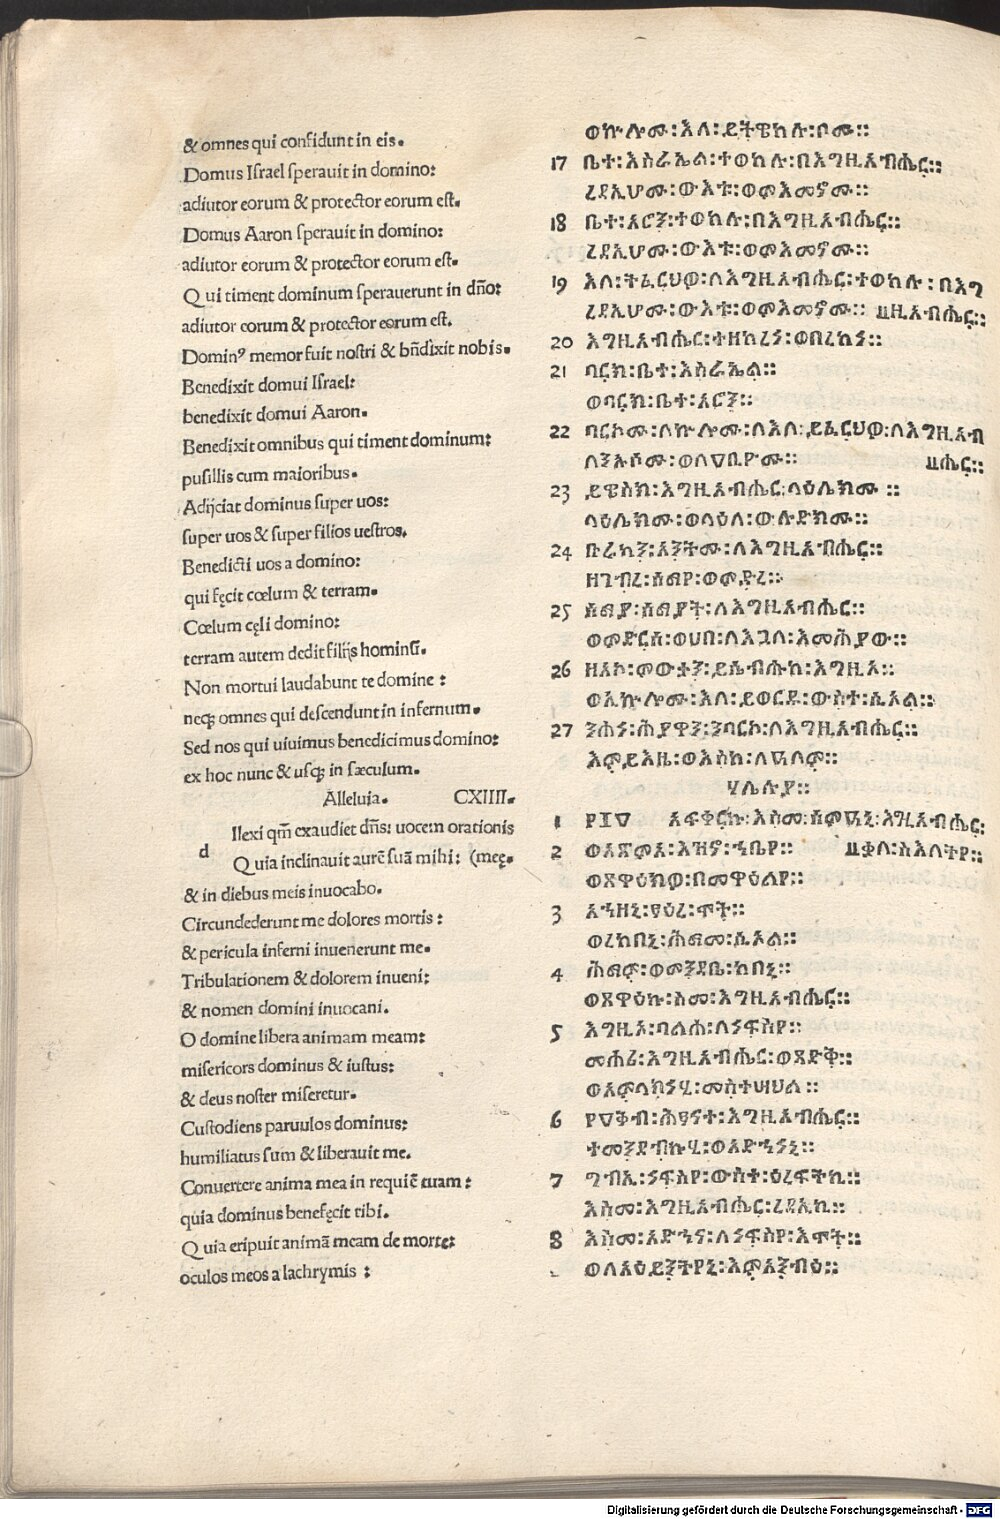 & omnes qui confidunt in eis.
Domus Israel sperauit in domino:
adiutor eorum & protector eorum est.
Domus Aaron sperauit in domino:
adiutor eorum & protector eorum est.
Qui timent dominum sperauerunt in dño:
adiutor eorum & protector eorum est.
Dominꝰ memor fuit nostri & bñdixit nobis.
Benedixit domui Israel:
benedixit domui Aaron.
Benedixit omnibus qui timent dominum:
pusillis cum maioribus.
Adijciat dominus super uos:
super uos & super filios uestros.
Benedicti uos a domino:
qui fęcit cœlum & terram.
Cœlum cęli domino:
terram autem dedit filijs hominũ.
Non mortui laudabunt te domine :
neq; omnes qui descendunt in infernum.
Sed nos qui uiuimus benedicimus domino:
ex hoc nunc & usq; in sæculum.
Alleluia. CXIIII.
d Ilexi qm̃ exaudiet dñs: uocem orationis
Quia inclinauit aurẽ suã mihi: (meę.
& in diebus meis inuocabo.
Circundederunt me dolores mortis :
& pericula inferni inuenerunt me.
Tribulationem & dolorem inueni:
& nomen domini inuocani.
O domine libera animam meam:
misericors dominus & iustus:
& deus noster miseretur.
Custodiens paruulos dominus:
humiliatus sum & liberauit me.
Conuertere anima mea in requiẽ tuam :
quia dominus benefęcit tibi.
Quia eripuit animã meam de morte:
oculos meos a lachrymis :
ወኵሎሙ፡እለ፡ይትዌከሉ፡ቦሙ።
17 ቤተ፡እስራኤል፡ተወከሉ፡በእግዚአብሔር።
ረዳኢሆሙ፡ውእቱ፡ወምእመኖሙ።
18 ቤተ፡አሮን፡ተወከሉ፡በእግዚአብሔር።
ረዳኢሆሙ፡ውእቱ፡ወምእመኖሙ።
19 እለ፡ትፈርህዎ፡ለእግዚአብሔር፡ተወከሉ፡በእግ
ረዳኢሆሙ፡ውእቱ፡ወምእመኖሙ። ዚአብሔር።
20 እግዚአብሔር፡ተዘከረነ፡ወበረከነ።
21 ባርክ፡ቤተ፡እስራኤል።
ወባርክ፡ቤተ፡አሮን።
22 ባርኮሙ፡ለኵሎሙ፡ለእለ፡ይፈርህዎ፡ለእግዚአብ
ለንኡሶሙ፡ወለዐቢዮሙ። ሔር።
23 ይዌስክ፡እግዚአብሔር፡ላዕሌክሙ።
ላዕሌክሙ፡ወላዕለ፡ውሉድክሙ።
24 ቡሩካን፡አንትሙ፡ለእግዚአብሔር።
ዘገብረ፡ሰማየ፡ወምድረ።
25 ሰማያ፡ሰማያት፡ለእግዚአብሔር።
ወምድርሰ፡ወሀበ፡ለእጓለ፡እመሕያው።
26 ዘአኮ፡ምውታን፡ይሴብሑከ፡እግዚአ።
ወአኵሎሙ፡እለ፡ይወርዱ፡ውስተ፡ሲኦል።
27 ንሕነ፡ሕያዋን፡ንባርኮ፡ለእግዚአብሔር።
እምይእዜ፡ወእስከ፡ለዓለም።
ሃሌሉያ።
1 ፻፲፬ አፍቀርኩ፡እስመ፡ሰምዐኒ፡እግዚአብሔር፡
2 ወአጽምአ፡እዝኖ፡ኀቤየ። ቃለ፡ስእለትየ።
ወጸዋዕክዎ፡በመዋዕልየ።
3 አኀዘኒ፡ጻዕረ፡ሞት።
ወረከበኒ፡ሕማመ፡ሲኦል።
4 ሕማም፡ወመንደቤ፡ከበኒ።
ወጸዋዕኩ፡ስመ፡እግዚአብሔር።
5 እግዚኦ፡ባልሓ፡ለነፍስየ።
መሐሪ፡እግዚአብሔር፡ወጻድቅ።
ወአምላክነሂ፡መስተሣህል።
6 የዐቅብ፡ሕፃናተ፡እግዚአብሔር።
ተመንደብኩሂ፡ወአድኀነኒ።
7 ግብኢ፡ነፍስየ፡ውስተ፡ዕረፍትኪ።
እስመ፡እግዚአብሔር፡ረድአኪ።
8 እስመ፡አድኀና፡ለነፍስየ፡እሞት።
ወለአዕይንትየኒ፡እምአንብዕ።
Digitalisierung gefördert durch die Deutsche Forschungsgemeinschaft - DFG